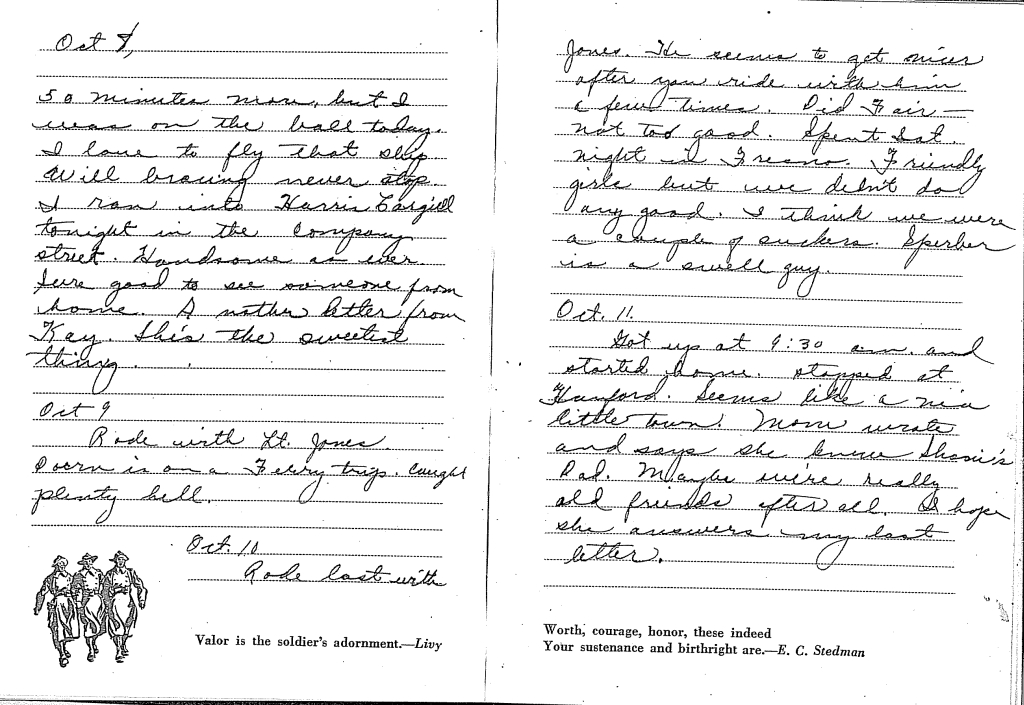 Oct 8,
50 minutes more, but I
was on the ball today.
I love to fly that ship
Will bracing never stop.
I ran into Harris Cargill
tonight in the Company
street. Handsome as ever.
Sure good to see someone from
home. Another letter from
Kay. She's the sweetest
thing.
Oct 9
Rode with Lt. Jones.
is on a Ferry trip. Caught
plenty hell.
Oct. 10
Rode last with
Valor is the soldier's adornment.—Livy
Jones. He seems to get nicer
after you ride with him
a few times. Did Fair—
not too good. Spent Sat.
night in Fresno. Friendly
girls but we didn't do
any good. I think we were
a couple of suckers. Sperber
is a swell guy.
Oct. 11.
Got up at 9:30 am. and
started home. stopped at
Hanford. Seems like a nice
little town. Mom wrote
and says she knew
Dad. Maybe we're really
old friends after all. I hope
she answers my last
letter.
Worth, courage, honor, these indeed
Your sustenance and birthright are.—E. C. Stedman